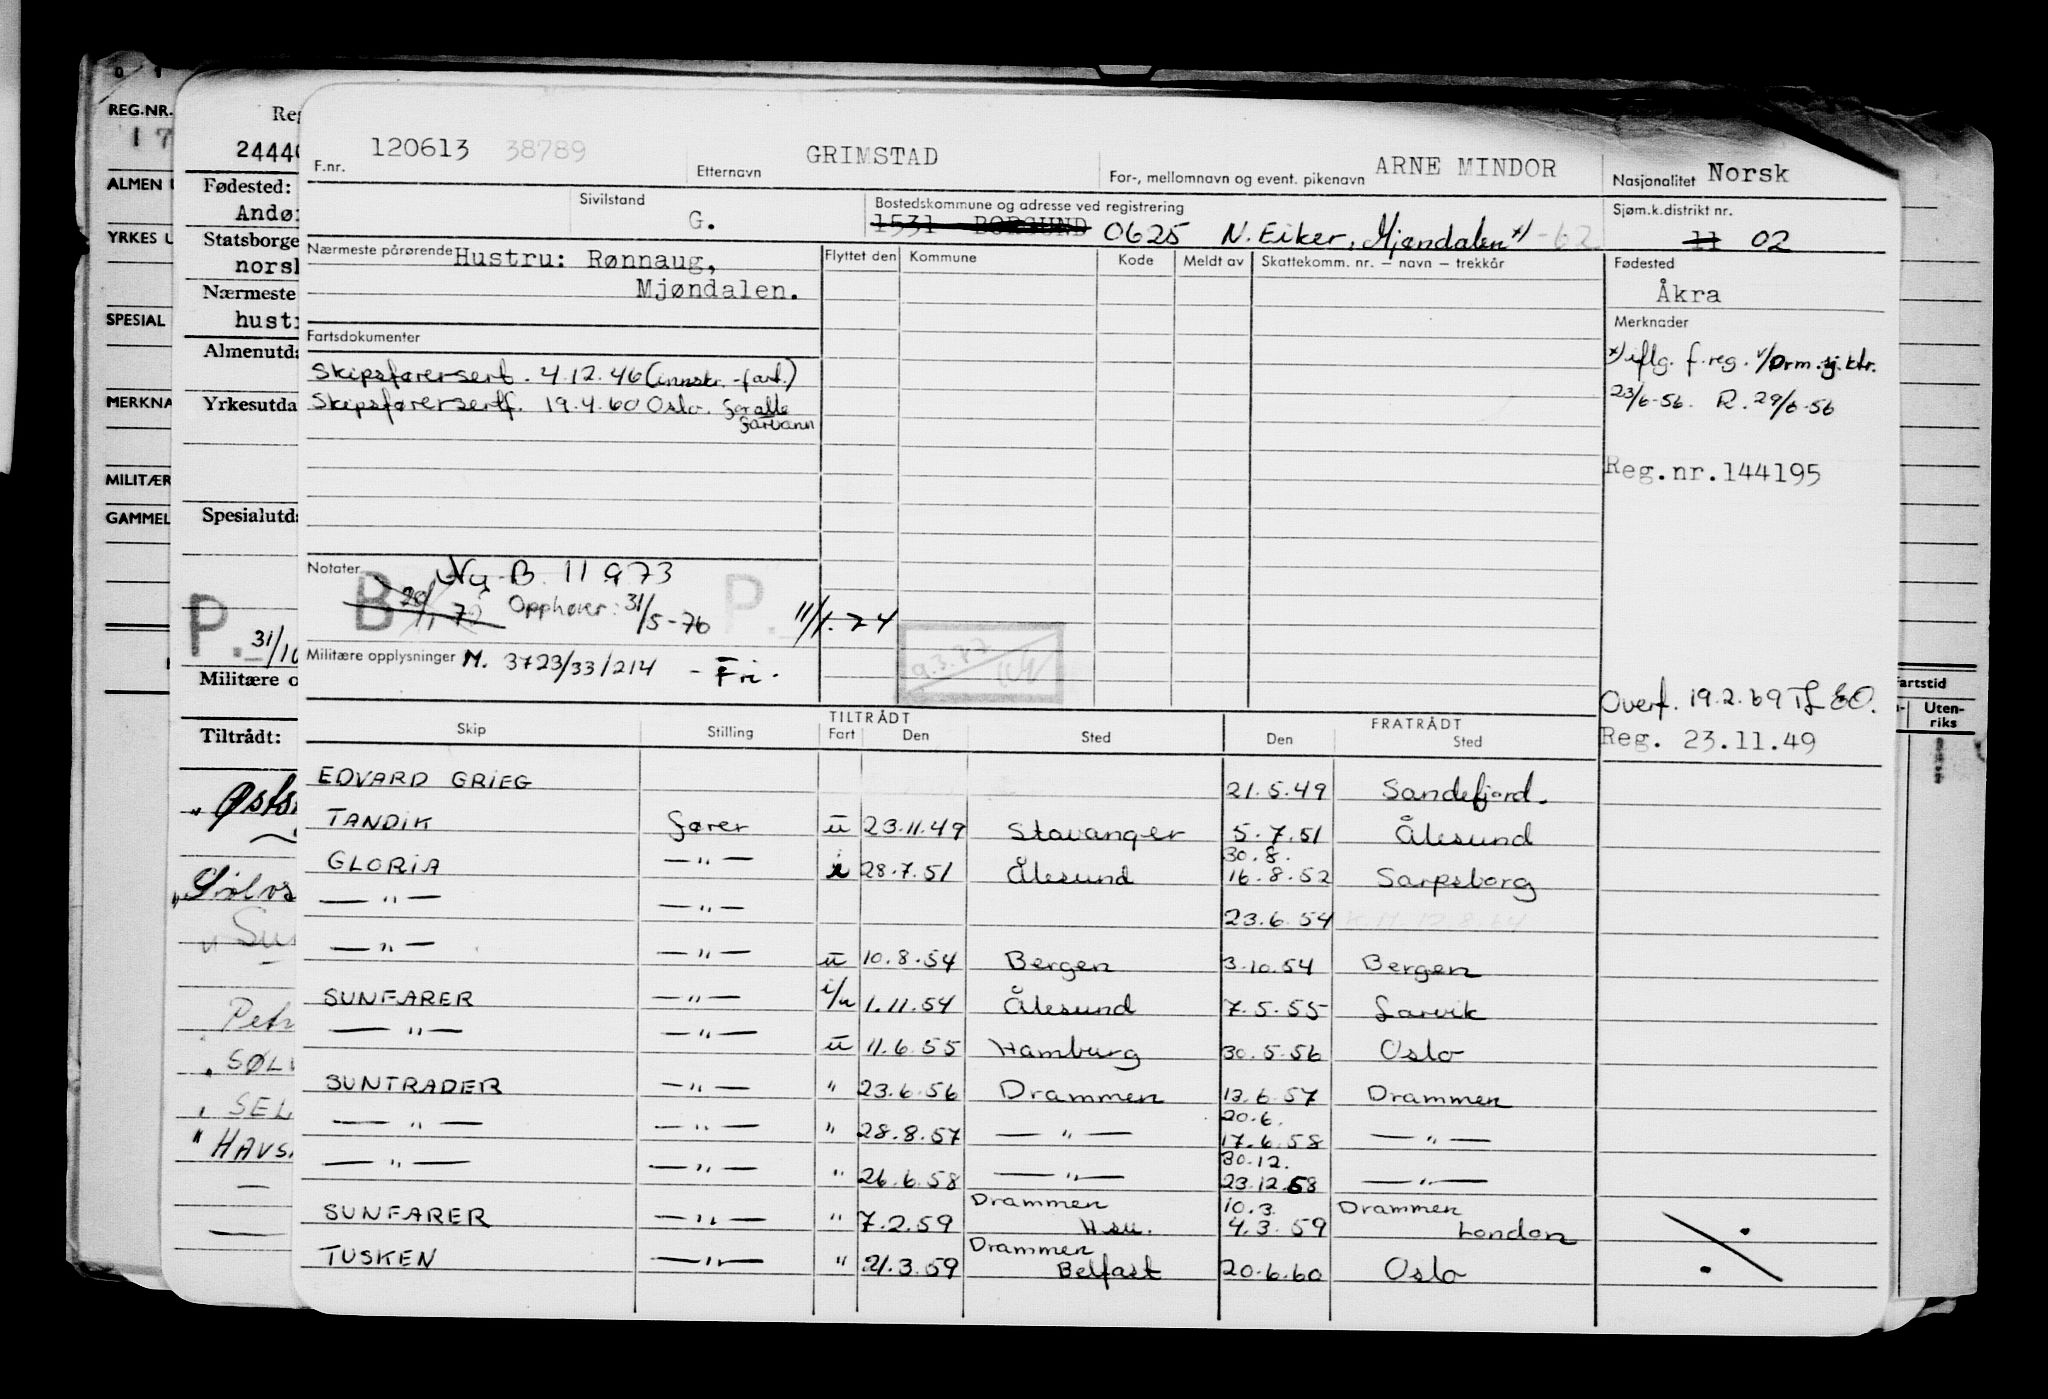 REG.NR.
17
ALMEN U
YRKES U
SPESIAL
MERKNA
MILITÆR
GAMMEL
Reg
24440
Fødested:
Andø
Statsborge
norsk
Nærmeste
hustr
Almenutda
Yrkesutda
Spesialutda
P. 31/10
Militære o
Tiltrådt:
" Østs
" Sølvs
" Su
Petr
SØLV
SEL
" HAVS
F.nr. 120613 38789 Etternavn GRIMSTAD For-, mellomnavn og event. pikenavn ARNE MINDOR Nasjonalitet Norsk
Sivilstand G. Bostedskommune og adresse ved registrering Sjøm.k.distrikt nr.
1531 BORGUND 0625 N. Eiker, Mjøndalen x) -62. 11 02
Nærmeste pårørende Hustru: Rønnaug, Flyttet den Kommune Kode Meldt av Skattekomm. nr. – navn – trekkår Fødested
Mjøndalen. Åkra
Fartsdokumenter Merknader
Skipsførersert. 4.12.46 (innskr.-fart.) x) iflg. f.reg. v/Drm.sj.ktr.
Skipsførersertf. 19.4.60 Oslo. for alle farvann 23/6-56. R. 29/6-56
Reg.nr.144195
Notater Ny B 11 9 73
B 20/11 72 Opphører: 31/5-76 P. 11/1.74
9.3.77
Militære opplysninger M. 3723/33/214 - Fri.
Overf. 19.2.69
Reg. 23.11.49
TILTRÅDT FRATRÅDT
Skip Stilling Fart Den Sted Den Sted
EDVARD GRIEG 21.5.49 Sandefjord.
TANDIK fører u 23.11.49 Stavanger 5.7.51 Ålesund
GLORIA — " — i 28.7.51 Ålesund 30.8. 16.8.52 Sarpsborg
— " — — " — 23.6.54
— " — — " — u 10.8.54 Bergen 3.10.54 Bergen
SUNFARER — " — i/u 1.11.54 Ålesund 7.5.55 Larvik
— " — — " — u 11.6.55 Hamburg 30.5.56 Oslo
SUNTRADER — " — " 23.6.56 Drammen 13.6.57 Drammen
— " — — " — " 28.8.57 — " — 20.6. 17.6.58 — " —
— " — — " — " 26.6.58 — " — 30.12. 23.12.58 — " —
SUNFARER — " — " 7.2.59 Drammen 10.3. 4.3.59 Drammen London
TUSKEN — " — " 21.3.59 Drammen Belfast 20.6.60 Oslo
Fartstid
Uten-
riks